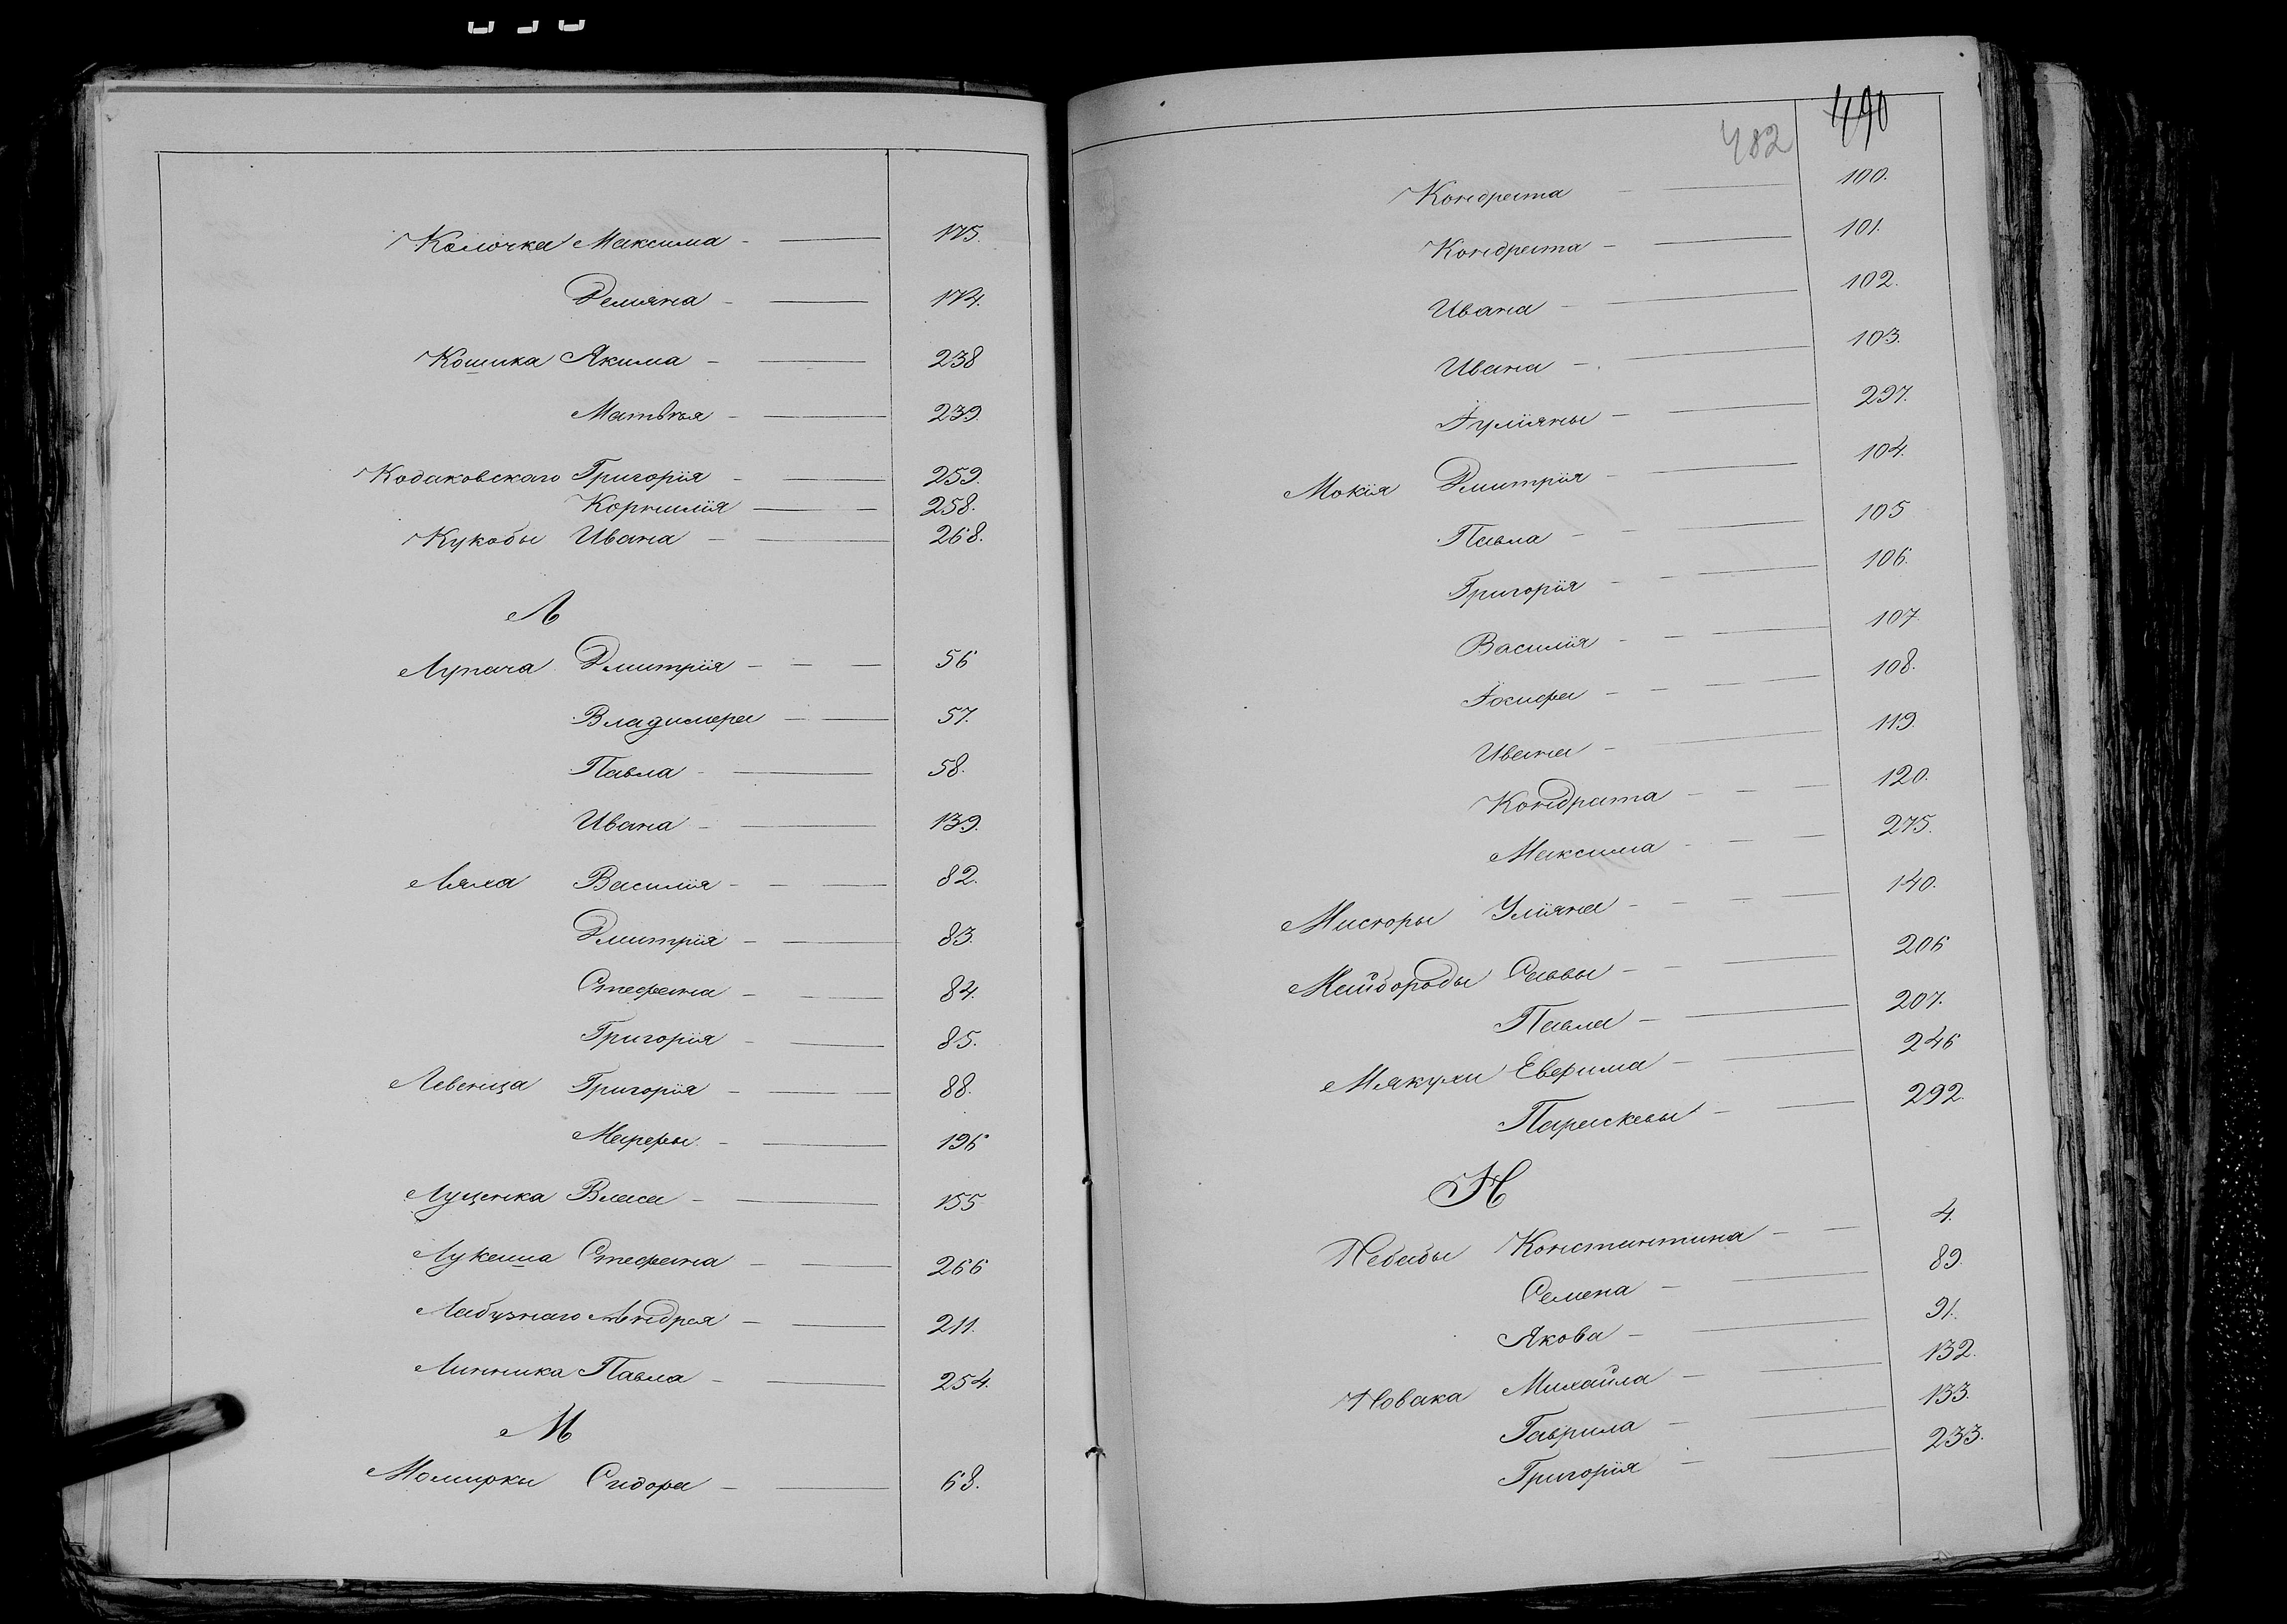 Колочка Максима - — 175.
Демяна - — 174.
Кошика Якима - — 238
Матвѣя - — 239.
Кодаковскаго Григорія - — 259.
Корнилія — - 258.
Кукобы Ивана - — 268.
Л
Лупача Дмитрія - - - 56
Владимера - — 57.
Павла - — 58.
Ивана - — 139.
Ляха Василія - - — 82.
Дмитрія - — 83.
Стефана - — 84.
Григорія - — 85.
Левенца Григорія - — - 88.
Марфы - — 196
Луценка Власа - — 155
Лукаша Стефана - — 266
Лабузнаго Андрея - — 211.
Линника Павла - — 254.
М
Момирки Сидора - — 68.
482 490
Кондрата - — 100.
Кондрата - — 101.
Ивана - — 102.
Ивана - — 103.
Іуліяны - — 297.
Мокія Дмитрія - — 104.
Павла - - — 105
Григорія - - — 106.
Василія - - — 107.
Іосифа - - — 108.
Ивана - — 119.
Кондрата - - - 120.
Максима - - - 275.
Мисюры Уліяна - - - — 140.
Майбороды Саввы - - — 206
Павла - — 207.
Мякухи Евфима - — 246
Параскевы - — 292.
Н
Небабы Константина - — 4.
Семена - — 89.
Якова - — 91.
Новака Михайла - — 132.
Гаврила - — 133.
Григорія - — 233.